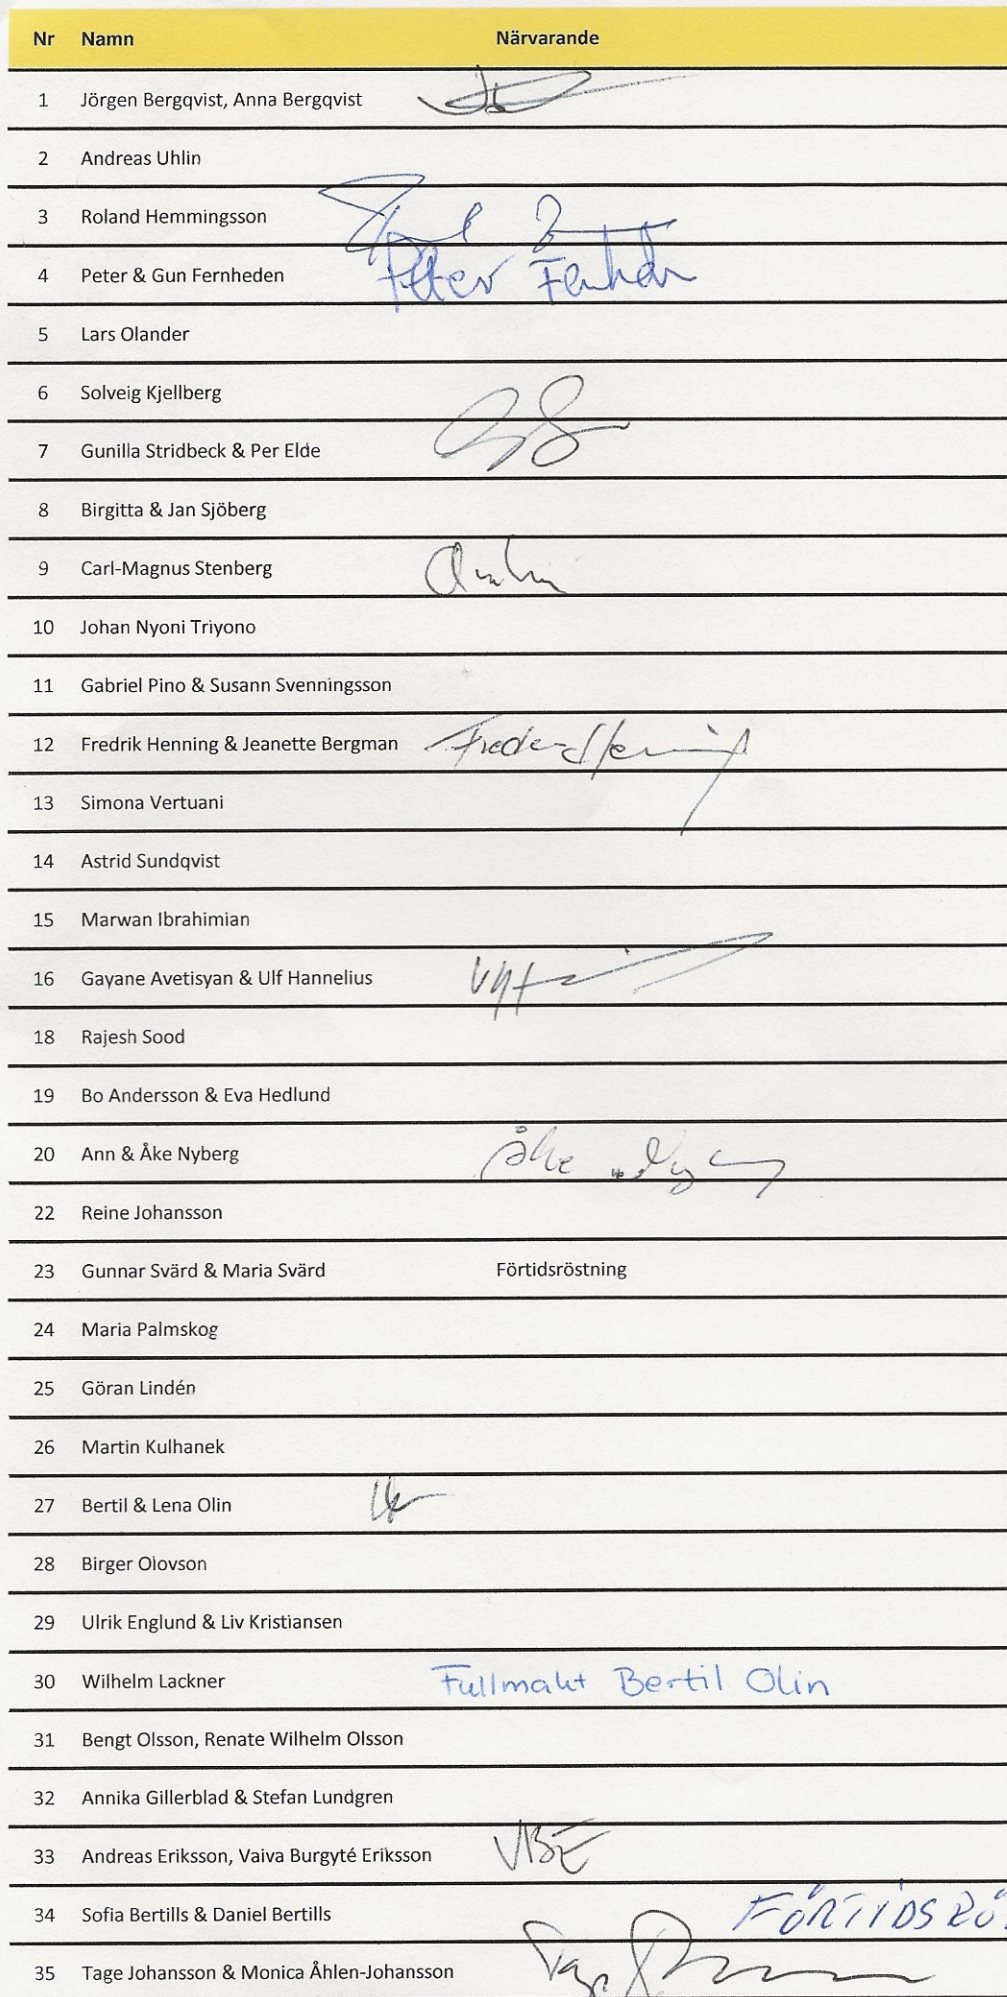 Nr Namn Närvarande
1 Jörgen Bergqvist, Anna Bergqvist
2 Andreas Uhlin
3 Roland Hemmingsson
4 Peter & Gun Fernheden Peter
5 Lars Olander
6 Solveig Kjellberg
7 Gunilla Stridbeck & Per Elde
8 Birgitta & Jan Sjöberg
9 Carl-Magnus Stenberg
10 Johan Nyoni Triyono
11 Gabriel Pino & Susann Svenningsson
12 Fredrik Henning & Jeanette Bergman
13 Simona Vertuani
14 Astrid Sundqvist
15 Marwan Ibrahimian
16 Gayane Avetisyan & Ulf Hannelius
18 Rajesh Sood
19 Bo Andersson & Eva Hedlund
20 Ann & Åke Nyberg Åke
22 Reine Johansson
23 Gunnar Svärd & Maria Svärd Förtidsröstning
24 Maria Palmskog
25 Göran Lindén
26 Martin Kulhanek
27 Bertil & Lena Olin
28 Birger Olovson
29 Ulrik Englund & Liv Kristiansen
30 Wilhelm Lackner Fullmakt Bertil Olin
31 Bengt Olsson, Renate Wilhelm Olsson
32 Annika Gillerblad & Stefan Lundgren
33 Andreas Eriksson, Vaiva Burgyté Eriksson VBE
34 Sofia Bertills & Daniel Bertills FÖRTIDSRÖ
35 Tage Johansson & Monica Åhlen-Johansson